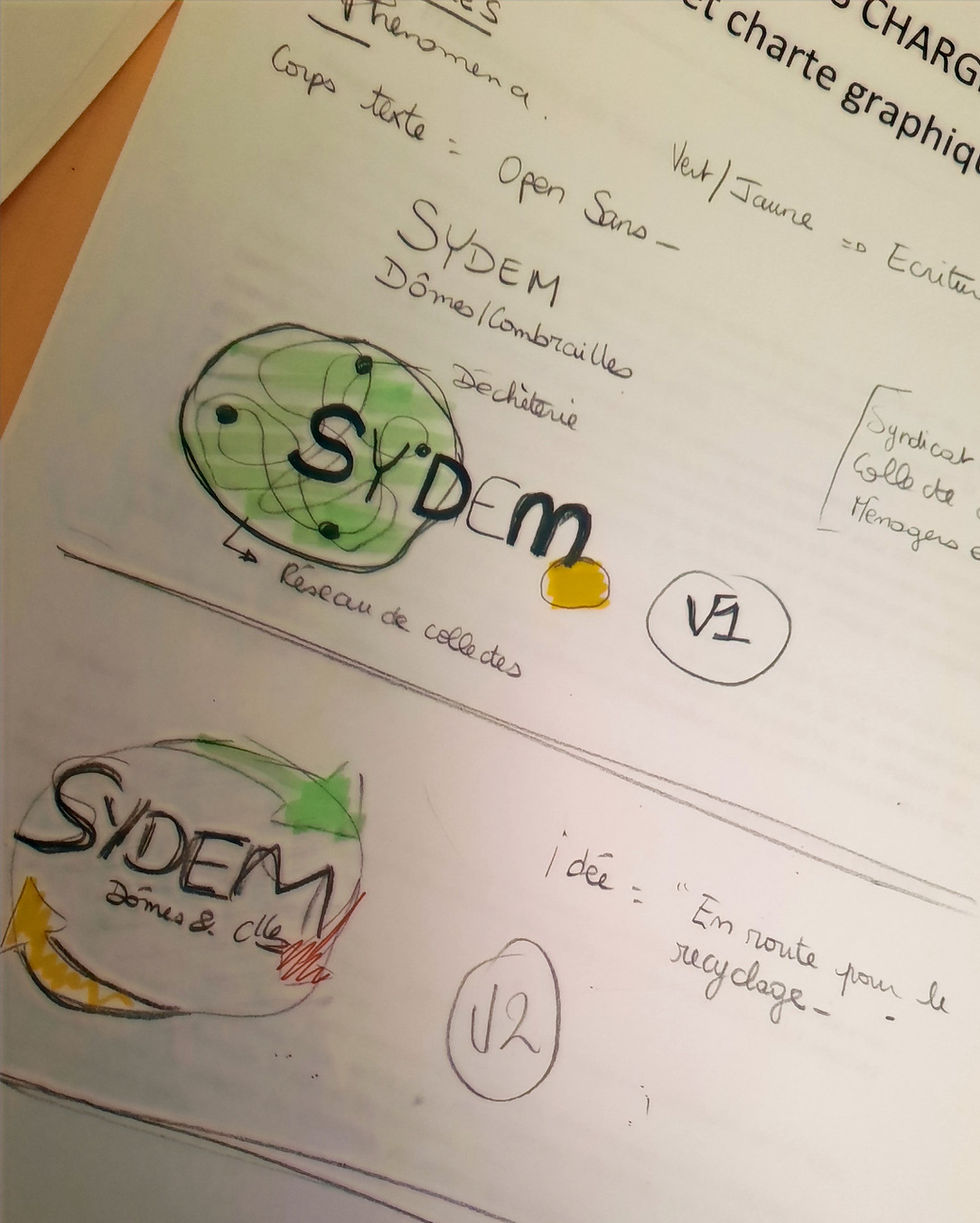 CHARG
et charte graphiqu
Phenomena.
Corps texte = Open Sans -
Vert/Jaune => Ecritur
SYDEM
Dômes/Combrailles
Déchèterie
SYDEm
Réseau de collectes
V1
Syndicat
Collecte
Ménagers e
SYDEM
Dômes & clles
idée = "En route pour le
recyclage -
V2